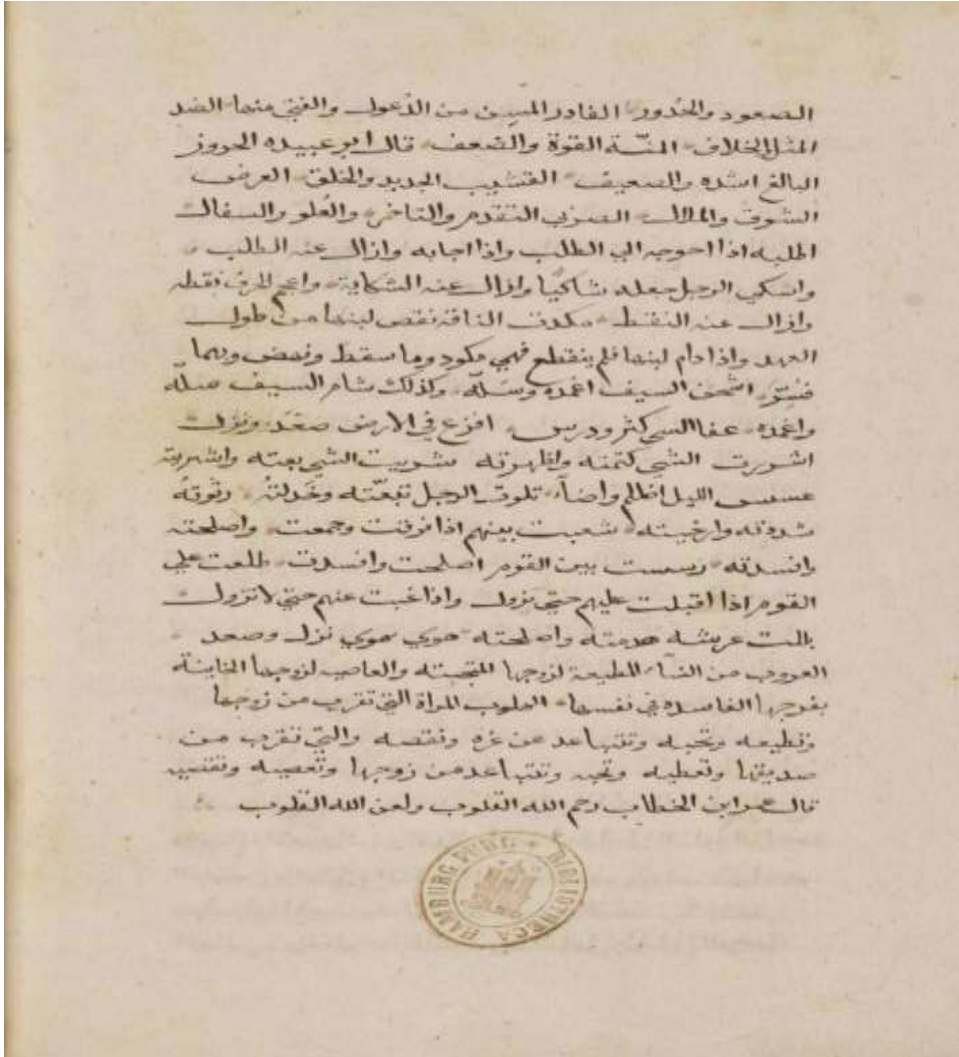 الصعود والحدور الفادر المسن من الوعول والفتي منها الضد
المثل والخلاف المنّة القوة والضعف قال ابو عبيده الحزور
البالغ اشده والضعيف القشيب الجديد والخلق الغرض
الشوق والملال التقدم والتاخر والعلو والسفال
اطلبه اذا احوجه الي الطلب واذا اجابه وازال عنه الطلب
واشكي الرجل جعله شاكيًا وازال عنه الشكاية واعجم الحرف نقطه
وازال عنه النقط مكدت الناقة نقص لبنها من طول
العهد واذا دام لبنها فلم ينقطع فهي مكود وما سقط ونهض وبهما
فُسّر اشحن السيف اغمده وسَلّه وكذلك شام السيف سلّه
واغمده عفا الشي كثر ودرس افرع في الارض صعَد ونزل
اسررت الشي كتمته واظهرته شريت الشي بعته واشتريته
عسعس الليل اظلم واضآء تلوت الرجل تبعته وخذلته رتوته
شددته وارخيته شعبت بينهم اذا فرقت وجمعت واصلحته
وافسدته رسست بين القوم اصلحت وافسدت طلعت علي
القوم اذا اقبلت عليهم حتي يروك واذا غبت عنهم حتي لا يروك
ثللت عريشه هدمته واصلحته هوي يهوي نزل وصعد
العروب من النسآء المطيعة لزوجها المتحببة والعاصية لزوجها الخاينة
بفرجها الفاسده في نفسها القلوب المراة التي تقرب من زوجها
وتطيعه وتحبه وتتباعد عن غيره وتقصيه والتي تقرب من
صديقها وتعطيه وتحبه وتتباعد من زوجها وتعصيه وتقصيه
قال عمر ابن الخطاب رحم الله القلوب ولعن الله القلوب
HAMBURG PUBL. BIBLIOTHECA